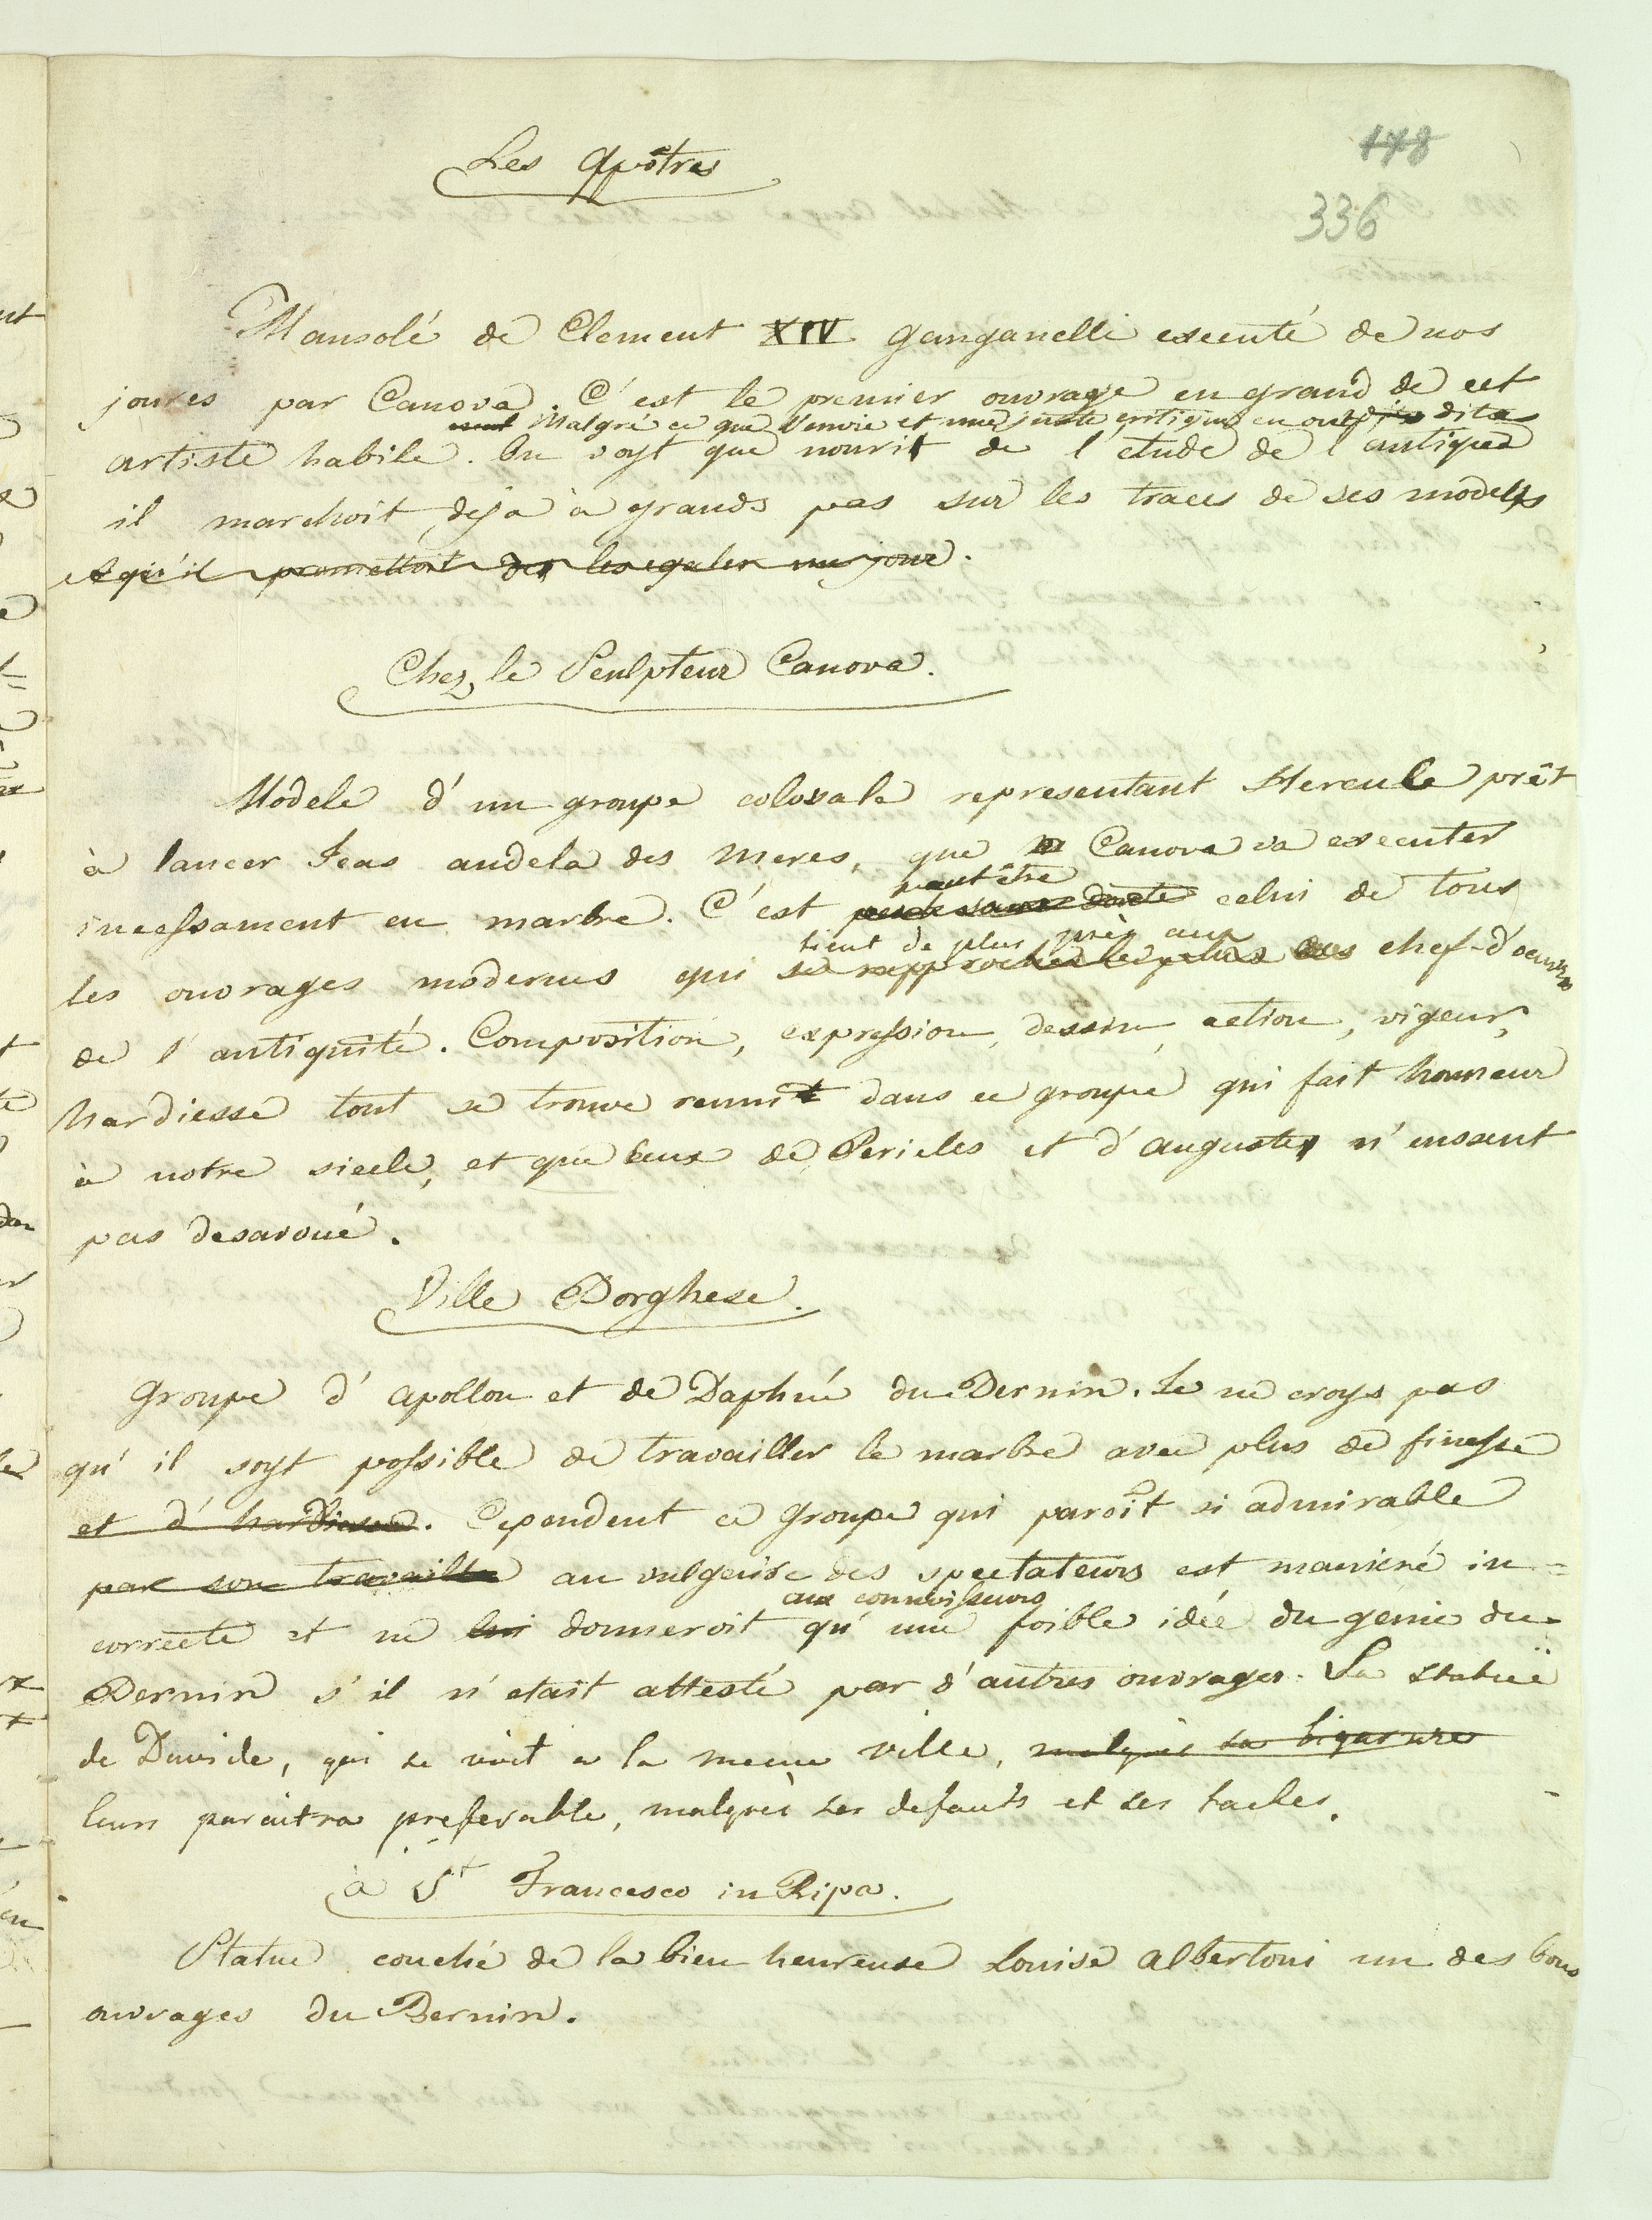 148
336
Les Apôtres
Mausolé de Clement XIV Ganganelli executé de nos
joures par Canova. C'est le premier ouvrage en grand de cet
Malgré ce que l'envie et une juste critique en out dita
artiste habile. On voyt que nourit de l'étude de l'antique
il marchoit deja à grands pas sur les traces de ses models
et qu'il promettoit de les egaler un jour.
Chez le Sculpteur Canova.
Modele d'un groupe colossale representant Hercule prêt
à lancer Icas audela des meres, que Canova va executer
peut être
incessament en marbre. C'est sans doute celui de tous
tient de plus près aux
les ouvrages modernes qui se rapproche le plus des chef-d'oeuvres
de l'antiquité. Composition, expression, dessin, action, vigeur,
hardiesse tout se trouve reunit dans ce groupe qui fait honneur
à notre siecle, et que ceux de Pericles et d'Auguste n'eussent
pas desavoué.
Ville Borghese.
Groupe d'Apollon et de Daphné du Bernin. Je ne croys pas
qu'il soyt possible de travailler le marbre avec plus de finesse
et d'hardiesse. Cependent ce groupe qui paroît si admirable
par son travaille au vulgaire des spectateurs est manieré in=
aux connoisseurs
correcte et ne lui donneroit qu'une foible idée du genie du
Bernin s'il n'etait attesté par d'autres ouvrages. La statuë
de Davide, qui se voit a la meme ville, malgré sa bigarure
leurs paraitra preferable, malgré ses defauts et ses taches.
à St Francesco in Ripa.
Statue couché de la bien heureuse Louise Albertoni un des bons
ouvrages du Bernin.